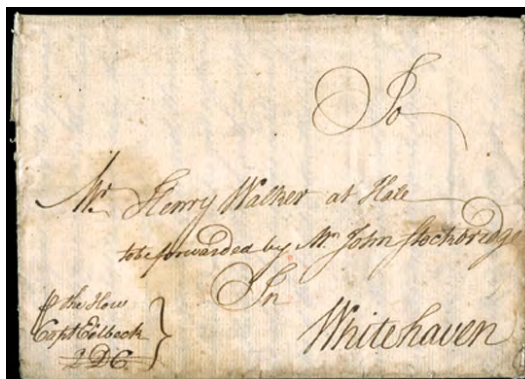 To
Mr. Henry Walker at Hale
to be forwarded by Mr. John Stockbridge
In
Whitehaven
the How
Capt Eilbeck
QDC